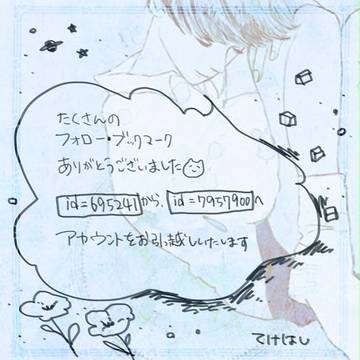 たくさんの
フォロー・ブックマーク
ありがとうございました
id=695241から、id=7957900へ
アカウントをお引越しいたします
てけはし